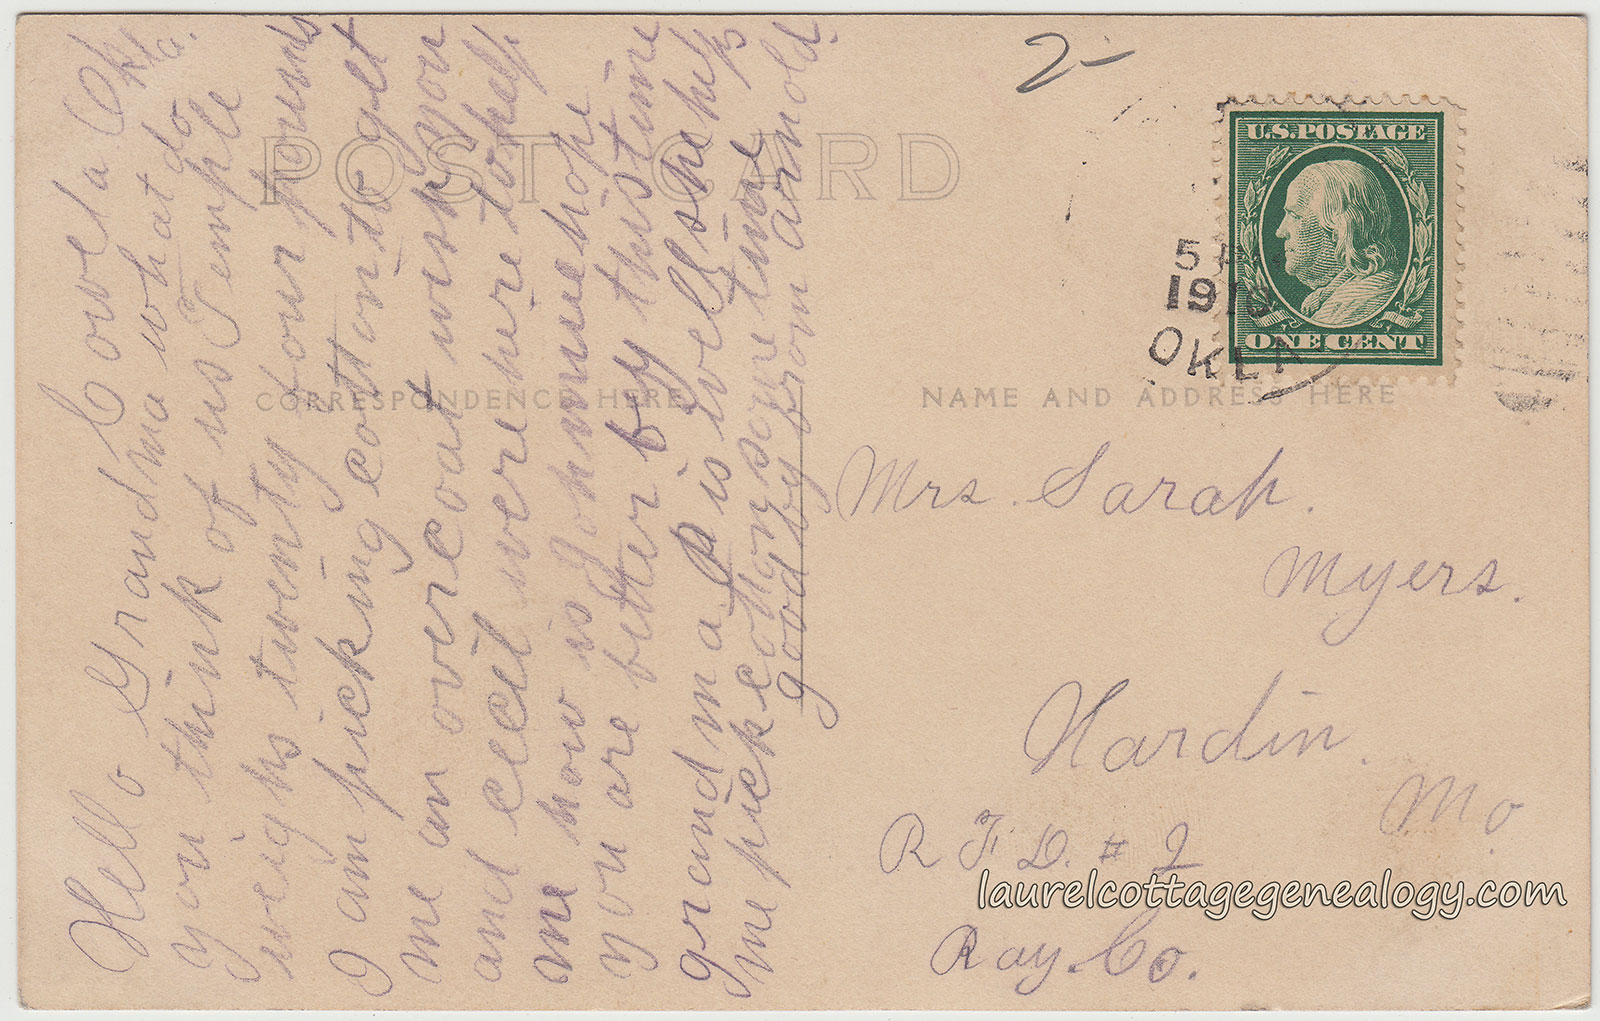 Coweta Okla.
Hello Grandma what do
you think of us Temple
weighs twenty four pounds
I am picking cotton to get
me an overcoat wish you
and ecil were here to help
me how is Johnnie hope
you are better by this time
grand ma P is well she helps
me pick cotton some time
good by from arnold.
POST CARD
CORRESPONDENCE HERE
NAME AND ADDRESS HERE
2-
U.S. POSTAGE
ONE CENT
5 P
1910
OKLA
Mrs. Sarah.
Myers.
Hardin.
Mo
R F D. # 2
Ray. Co.
laurelcottagegenealogy.com